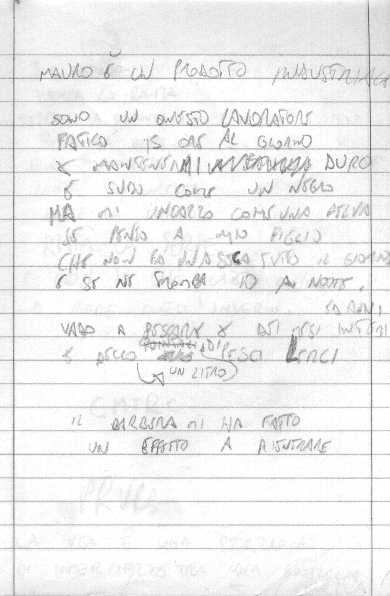 MAURO È UN PRODOTTO INDUSTRIALE
SONO UN ONESTO LAVORATORE
FATICO 15 ORE AL GIORNO
X MANTENERMI DURO
E SUDO COME UN NEGRO
MA MI INCAZZO COME UNA BELVA
SE PENSO A MIO FIGLIO
CHE NON FA UNA SEGA TUTTO IL GIORNO
E SE NE TROMBA 10 A NOTTE.
VADO A PESCARE X DEI MESI INTERI
E BECCO DI PESCI LERCI
UN LITRO
IL BARBERA MI HA FATTO
UN EFFETTO A RIENTRARE